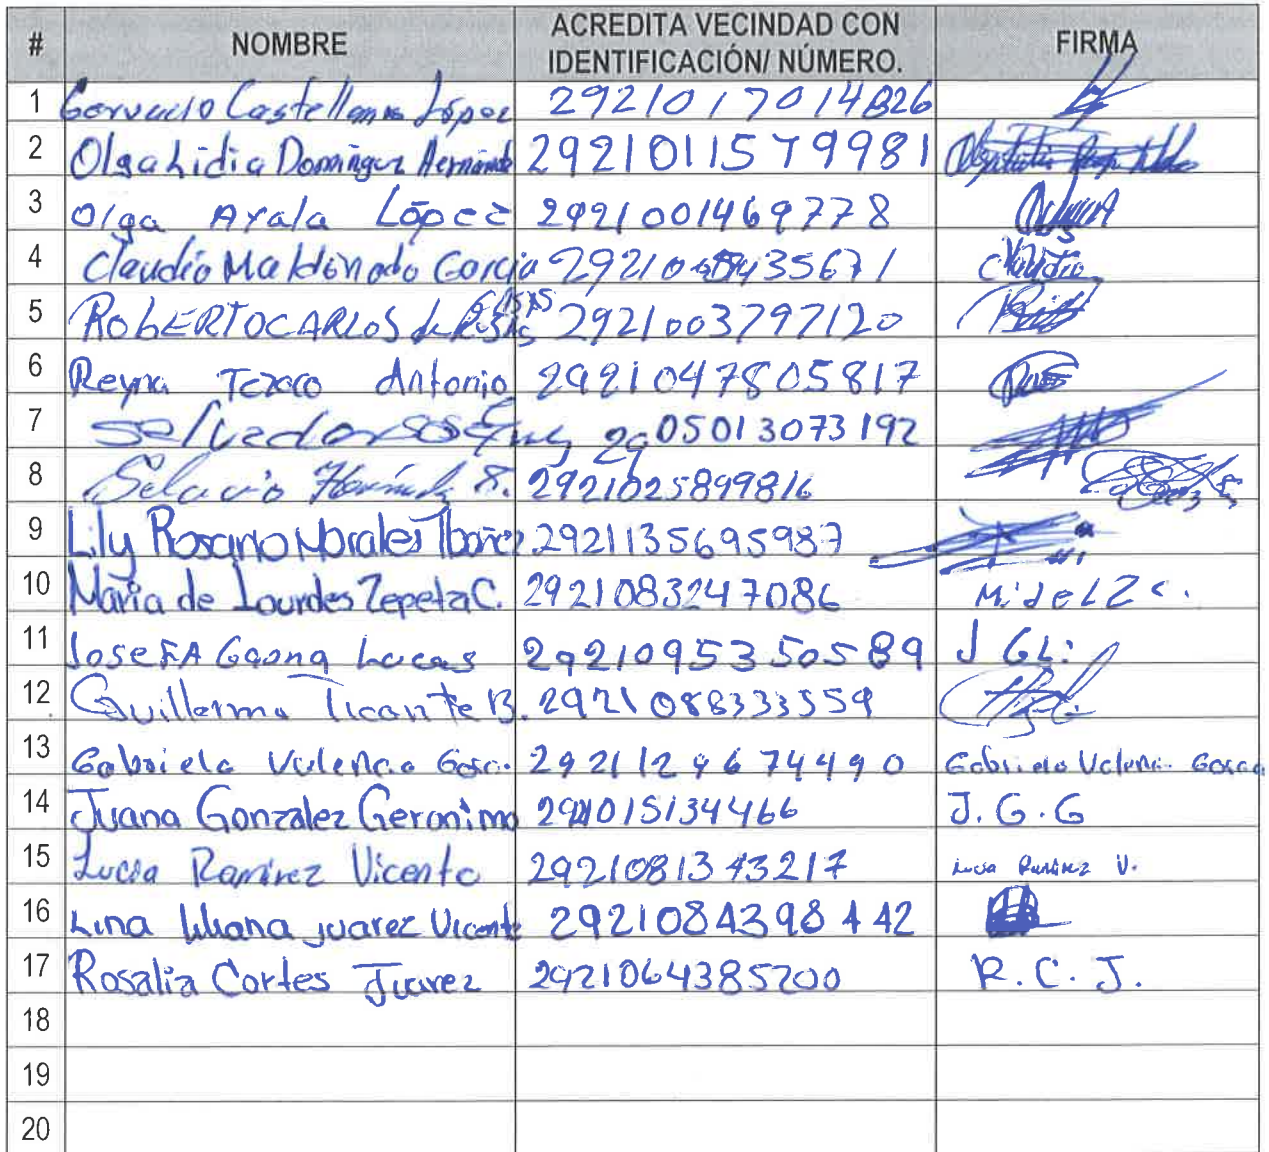 # NOMBRE ACREDITA VECINDAD CON IDENTIFICACIÓN/ NÚMERO. FIRMA
1 Gervacio Castellanos López 2921017014826
2 Olga Lidia Domínguez Hernánde 2921011579981
3 Olga Ayala López 2921001469778
4 Claudio Maldonado Garcia 35671 Claudio
5 ROBERTO CARLOS de 2921003797120
6 Reyna Texoco Antonio 2921047805817
7 Salvador 2905013073192
8 2921025899816
9 Lily Rosario Morales Ibañez 2921135695987
10 María de Lourdes Zepeta C. 2921083247086 M. de L Z C.
11 JOSEFA Gaona Lucas 2921095350589 J GL:
12 Guillermo Ticante B. 2921088333559
13 Gabriela Valencia 2921129674490 Gabriela Valenci
14 Juana Gonzalez Geronimo 015134466 J. G. G
15 Lucia Ramírez Vicente 2921081343217 Lucia Ramírez V.
16 Lina liliana juarez Vicente 2921084398442
17 Rosalia Cortes Juarez 2921064385200 R. C. J.
18
19
20